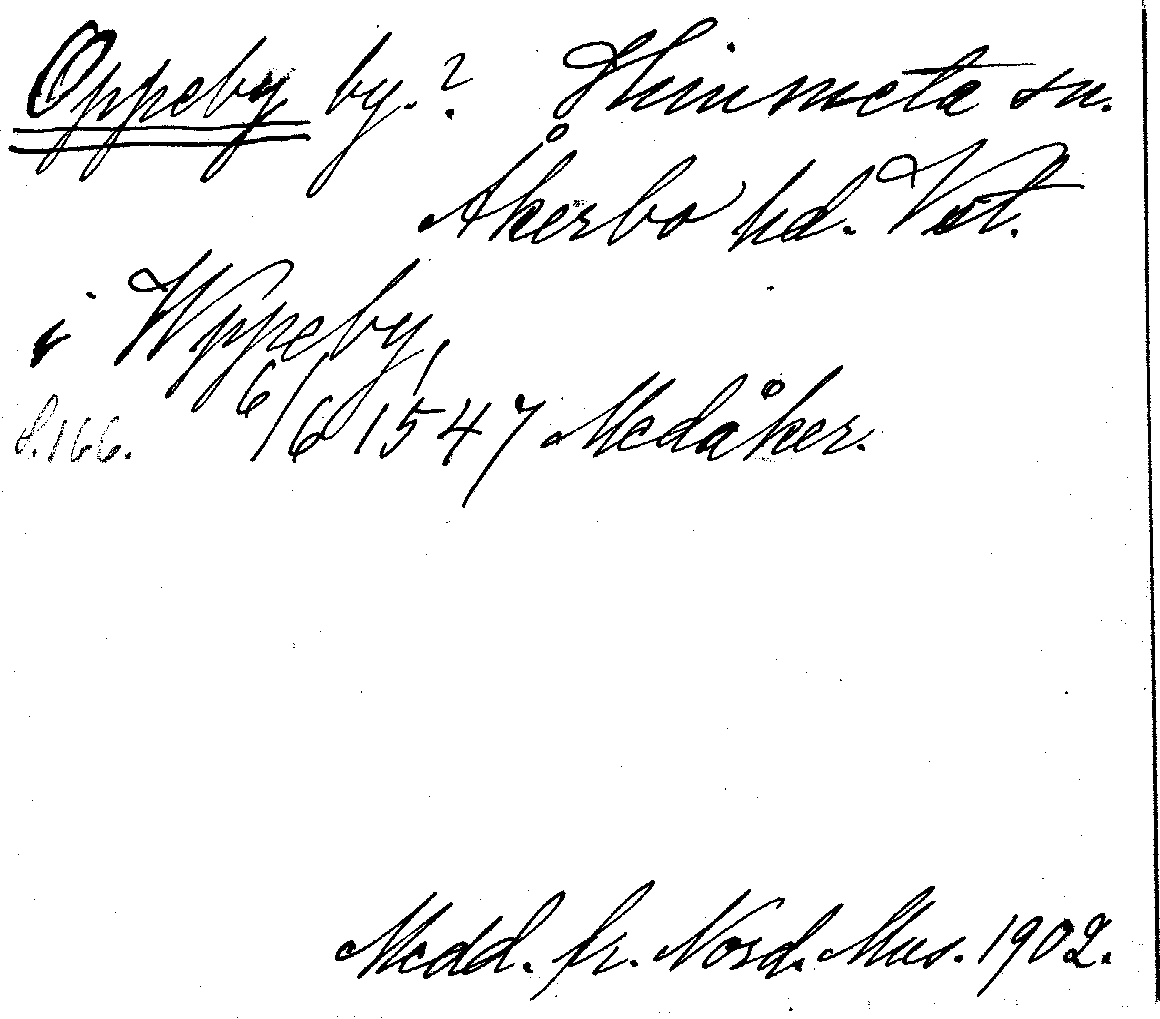 Oppeby by.? Himmeta sn.
Åkerbo hd. Vst.
i Wppeby,
s.166. 6/6 1547 Medåker.
Medd. fr. Nord. Mus. 1902.